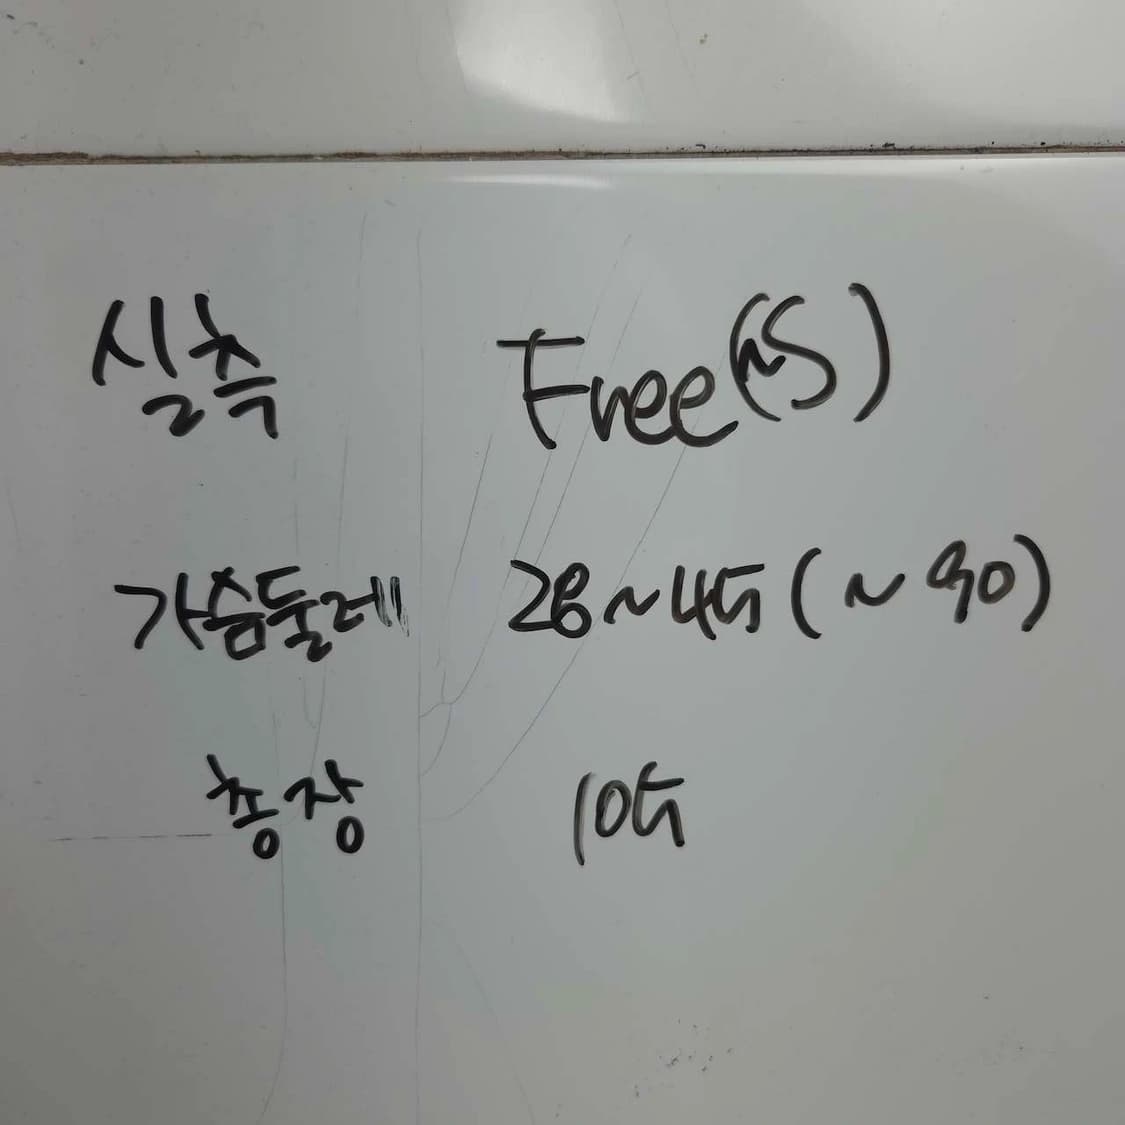 실측 Free(~S)
가슴둘레 28~45(~90)
총장 105